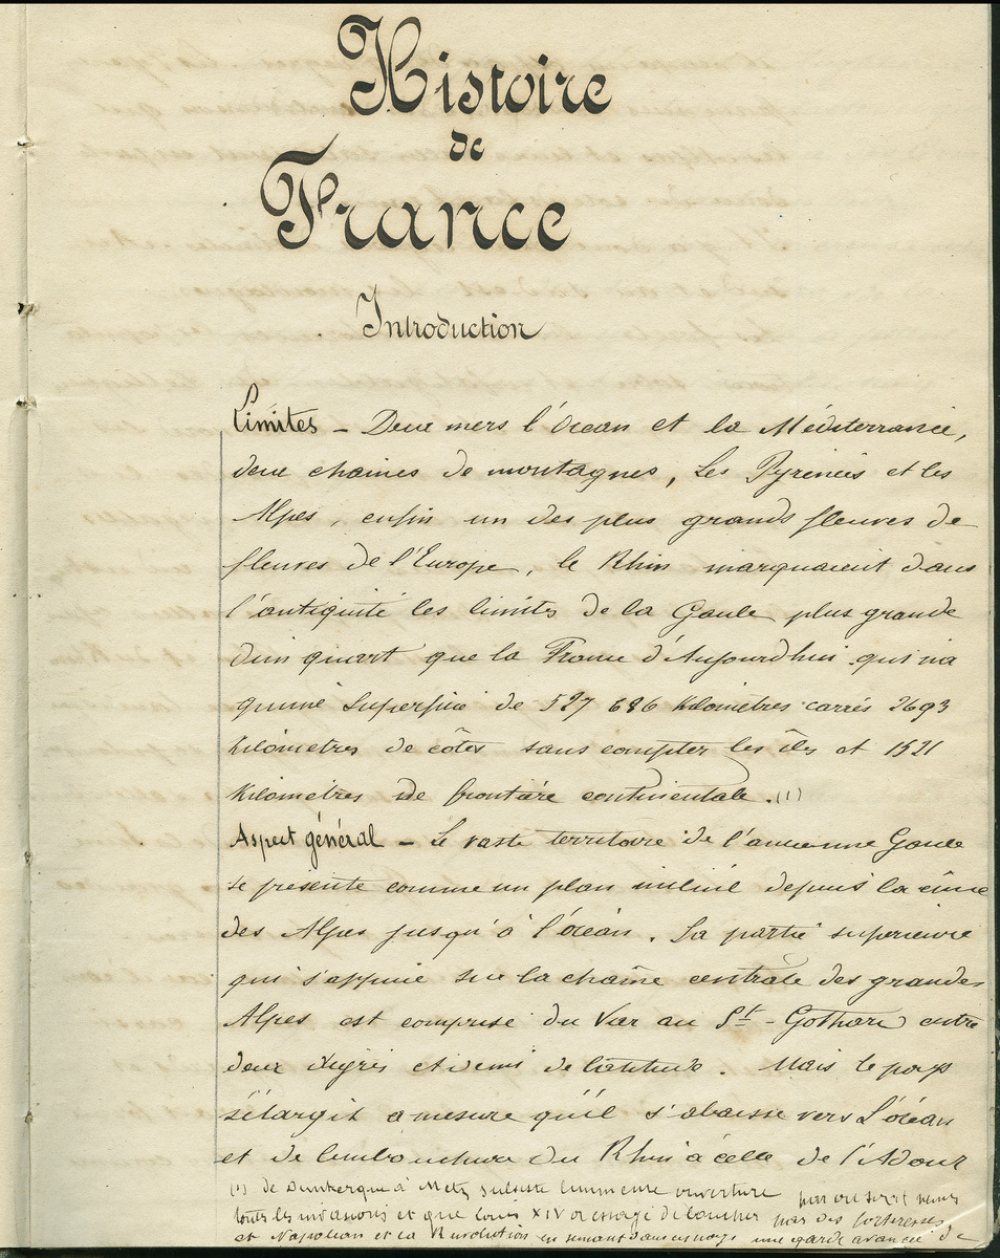 Histoire
de
France
Introduction
Limites - Deux mers l'Océan et la Méditerranée,
deux chaines de montagnes, Les Pyrénées et les
Alpes, enfin un des plus grands fleuves de
fleuves de l'Europe, le Rhin marquaient dans
l'antiquité les limites de la Gaule plus grande
d'un quart que la France d'Aujourd'hui qui n'a
qu'une superficie de 527 686 Kilomètres carrés 2693
Kilomètres de côtes sans compter les îles et 1521
Kilomètres de frontière continentale. (1)
Aspect général - Le vaste territoire de l'ancienne Gaule
se présente comme un plan incliné depuis la cime
des Alpes jusqu'à l'océan. La partie supérieure
qui s'appuie sur la chaîne centrale des grandes
Alpes est comprise du Var au St - Gothard entre
deux degrés et demi de latitude. Mais le pays
s'élargit a mesure qu'il s'abaisse vers L'océan
et de l'embouchure du Rhin à celle de l'Adour
(1) de Dunkerque à Metz subsiste l'immense ouverture par où sont venues
toutes les invasions et que Louis XIV a essayé de boucher par des forteresses,
et Napoléon et la Révolution en une garde avancée de